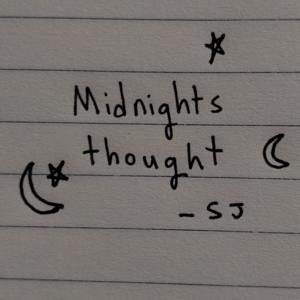 Midnights
thought
- SJ